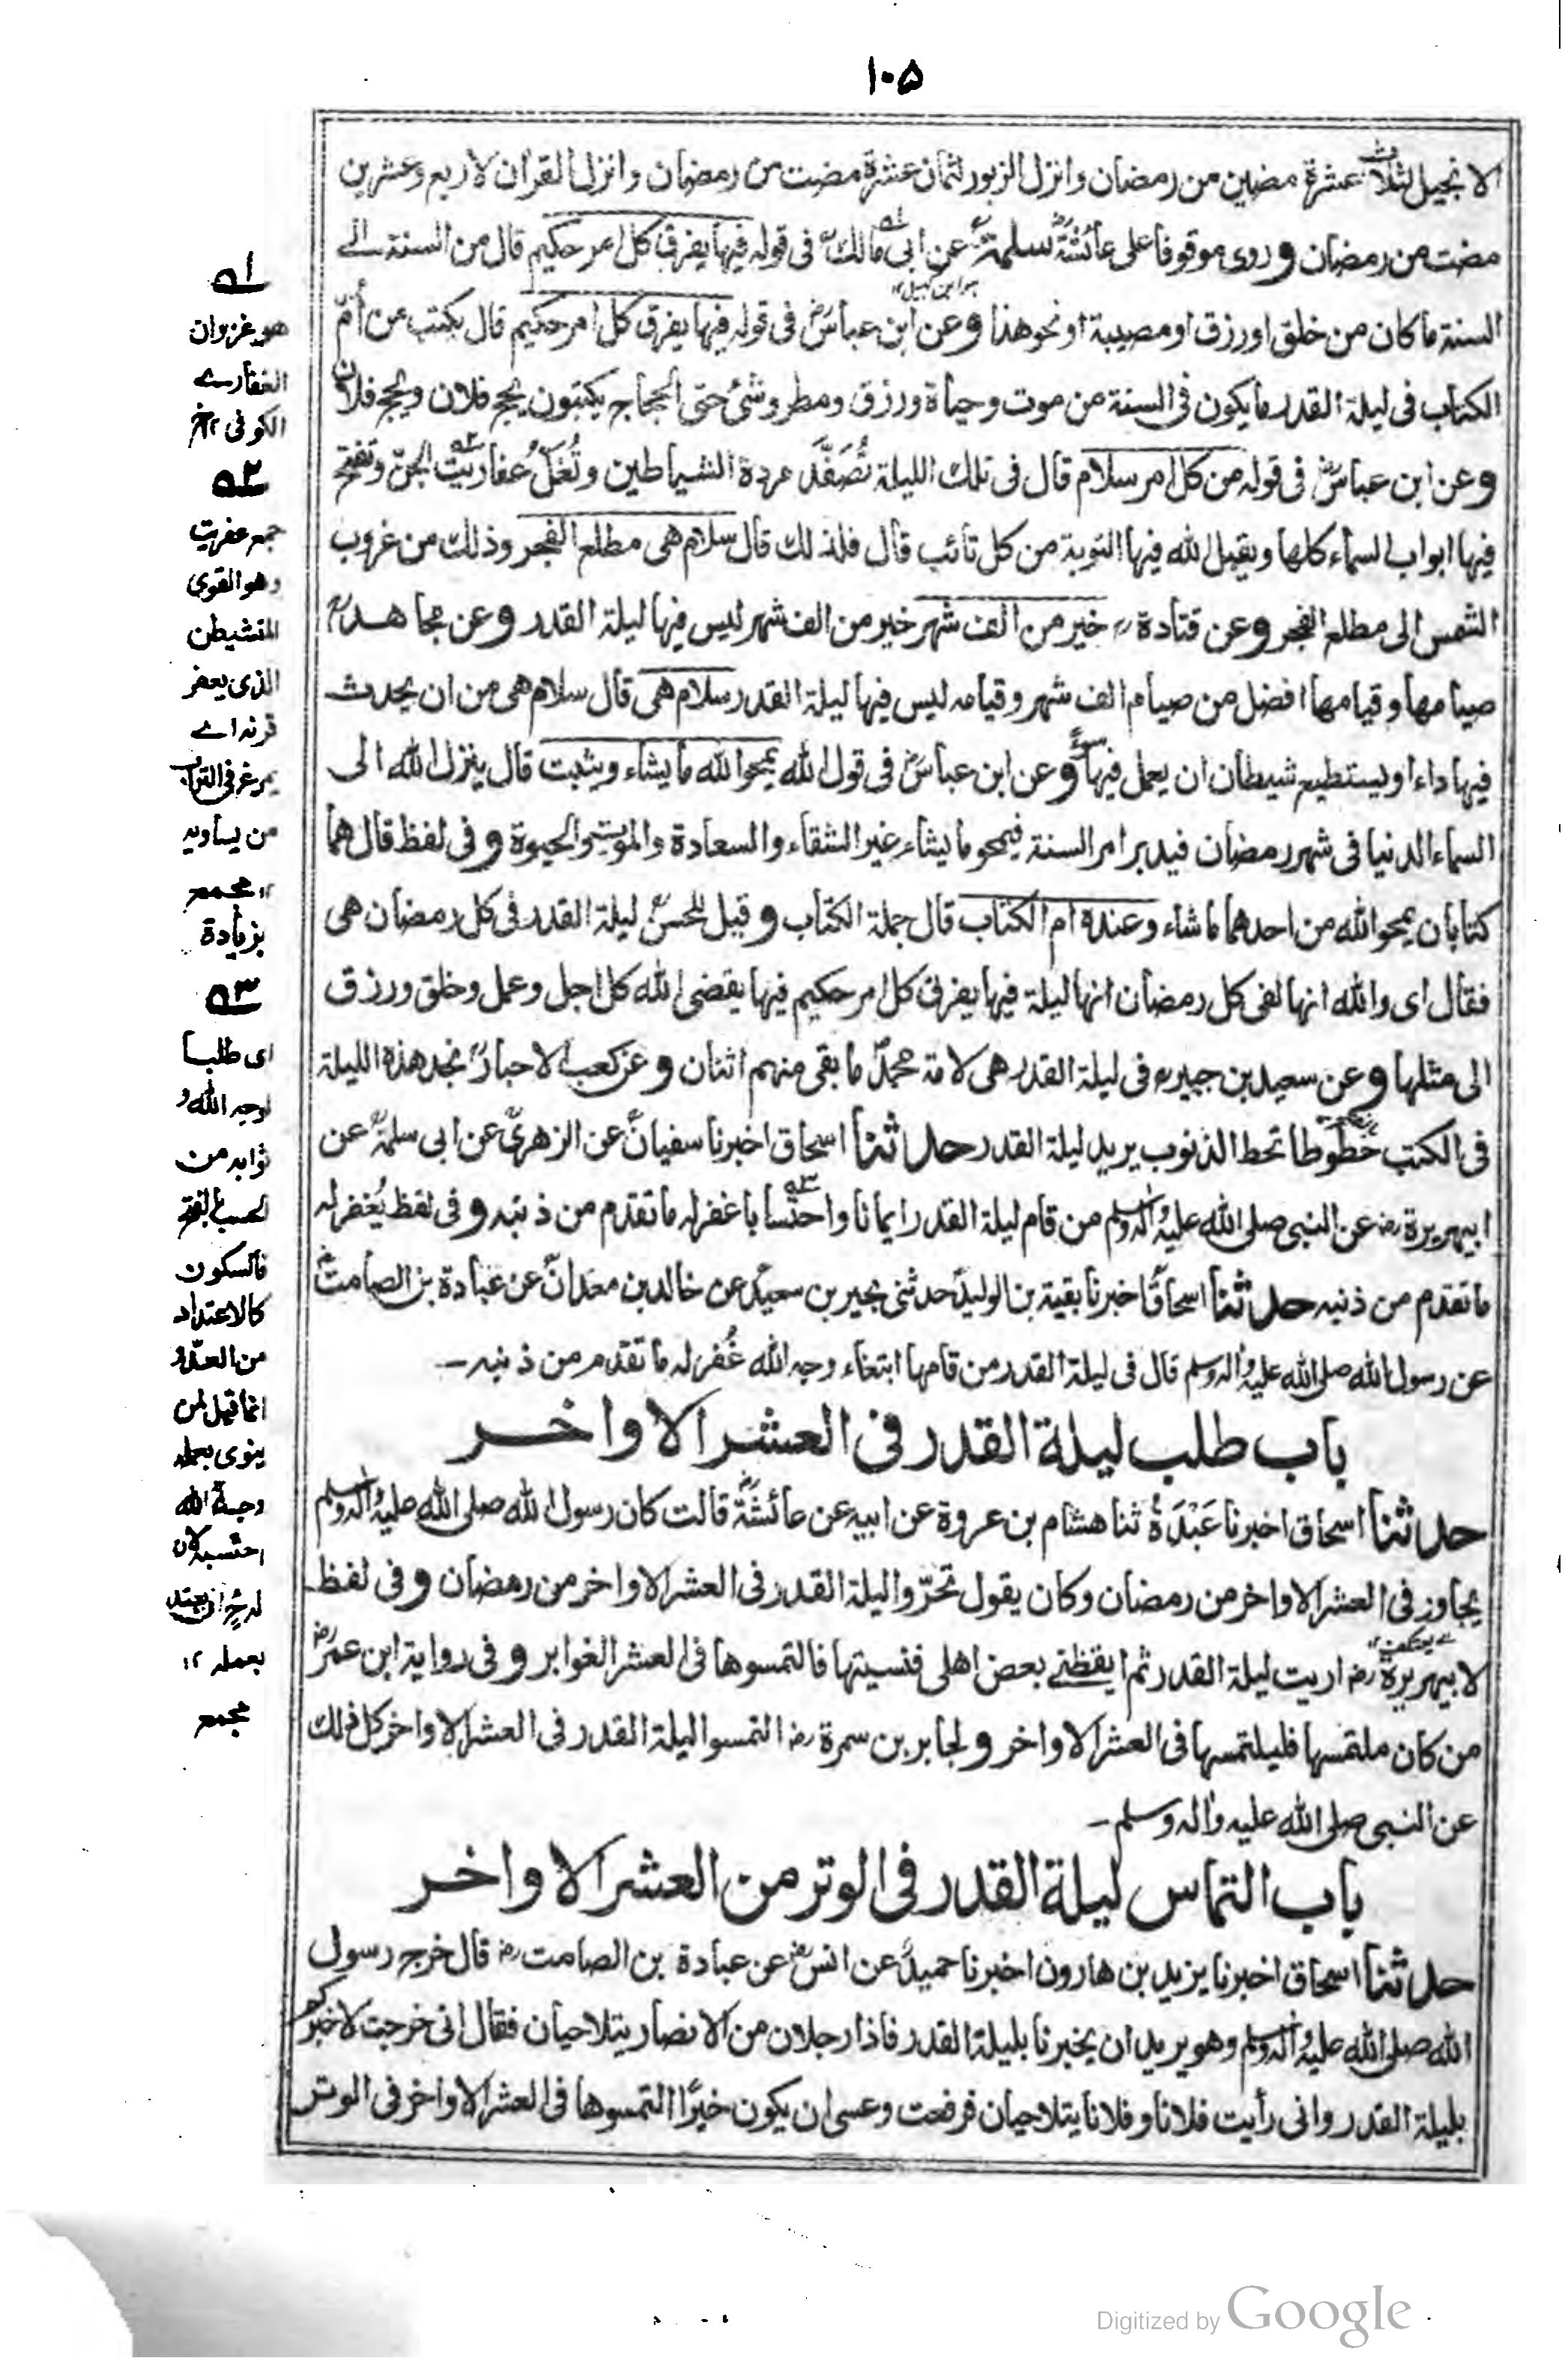 ١٠٥
الانجيل لثلاث عشرة مضين من رمضان وانزل الزبور لثمان عشرة مضت من رمضان وانزل القران لاربع وعشرين
مضت من رمضان وروى موقوفا على عائشة سلمة عن ابى مالك فى قوله فيها يفرق كل امر حكيم قال من السنة الى
السنة ما كان من خلق او رزق او مصيبة او نحو هذا وعن ابن عباس فى قوله فيها يفرق كل امر حكيم قال يكتب من أم
الكتاب فى ليلة القدر ما يكون فى السنة من موت وحياة ورزق ومطر وشئ حتى الحجاج يكتبون يحج فلان ويحج فلان
وعن ابن عباس فى قوله من كل امر سلام قال فى تلك الليلة تُصَفَّد مردة الشياطين وتُغَلّ عفاريت الجن وتفتح
فيها ابواب السماء كلها ويقبل الله فيها التوبة من كل تائب قال فلذلك قال سلام هى مطلع الفجر وذلك من غروب
الشمس الى مطلع الفجر وعن قتادة خير من الف شهر خير من الف شهر ليس فيها ليلة القدر وعن مجاهد
صيامها وقيامها افضل من صيام الف شهر وقيامه ليس فيها ليلة القدر سلام هى قال سلام هى من ان يحدث
فيها داء او يستطيع شيطان ان يعمل فيها وعن ابن عباس فى قول الله يمحوا الله ما يشاء ويثبت قال ينزل الله الى
السماء الدنيا فى شهر رمضان فيدبر امر السنة فيمحو ما يشاء غير الشقاء والسعادة والموت والحيوة وفى لفظ قال هما
كتابان يمحو الله من احدهما ما شاء وعنده ام الكتاب قال جملة الكتاب وقيل للحسن ليلة القدر فى كل رمضان هى
فقال اى والله انها لفى كل رمضان انها ليلة فيها يفرق كل امر حكيم فيها يقضى الله كل اجل وعمل وخلق ورزق
الى مثلها وعن سعيد بن جبير فى ليلة القدر هى لامة محمد ما بقى منهم اثنان وعن كعب الاحبار نجد هذه الليلة
فى الكتب خطوطا تحط الذنوب يريد ليلة القدر حدثنا اسحاق اخبرنا سفيان عن الزهرى عن ابى سلمة عن
ابيهريرة رض عن النبى صلى الله عليه واله وسلم من قام ليلة القدر ايمانا واحتسابا غفر له ما تقدم من ذنبه وفى لفظ يُغفر له
ما تقدم من ذنبه حدثنا اسحاق اخبرنا بقية بن الوليد حدثنى بحير بن سعيد عن خالد بن معدان عن عبادة بن الصامت
عن رسول الله صلى الله عليه واله وسلم قال فى ليلة القدر من قامها ابتغاء وجه الله غُفر له ما تقدم من ذنبه ــ
باب طلب ليلة القدر فى العشر الاواخر
حدثنا اسحاق اخبرنا عَبْدَةُ ثنا هشام بن عروة عن ابيه عن عائشة قالت كان رسول الله صلى الله عليه واله وسلم
يجاور فى العشر الاواخر من رمضان وكان يقول تحرّوا ليلة القدر فى العشر الاواخر من رمضان وفى لفظ
لابيهريرة رض اريت ليلة القدر ثم ايقظنے بعض اهلى فنسيتها فالتمسوها فى العشر الغوابر وفى رواية ابن عمر
من كان ملتمسها فليلتمسها فى العشر الاواخر ولجابر بن سمرة رض التمسوا ليلة القدر فى العشر الاواخر كل ذلك
عن النبى صلى الله عليه واله وسلم ــ
باب التماس ليلة القدر فى الوتر من العشر الاواخر
حدثنا اسحاق اخبرنا يزيد بن هارون اخبرنا حميد عن انس عن عبادة بن الصامت رض قال خرج رسول
الله صلى الله عليه واله وسلم وهو يريد ان يخبرنا بليلة القدر فاذا رجلان من الانصار يتلاحيان فقال انى خرجت لاخبركم
بليلة القدر وانى رأيت فلانا وفلانا يتلاحيان فرفعت وعسى ان يكون خيرًا التمسوها فى العشر الاواخر فى الوتر
ا؎
هو غزوان
الغفارے
الكوفى ١٢
٢؎
جمع عفريت
وهو القوى
المتشيطن
الذى يعفر
قرنه اے
يمرغ فى التراب
من يساويه
١٢ مجمع
بزيادة
٣؎
اى طلبا
لوجه الله و
ثوابه من
الحسب
فالسكون
كالاعتداد
من العد و
انما قيل لمن
ينوى بعمله
وجه الله
احتسبه لان
له ان يعتد
بعمله ١٢
مجمع
Digitized by Google